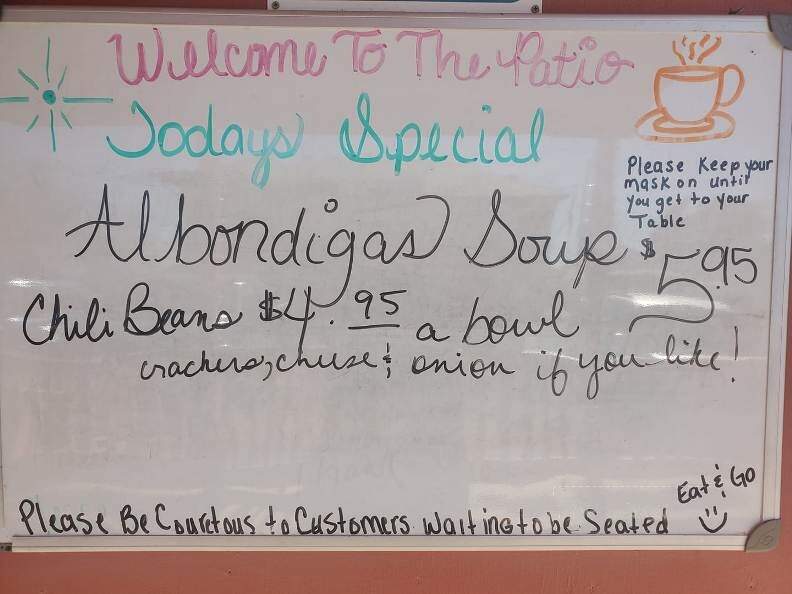 Welcome To The Patio
Todays Special
Please Keep your
mask on until
you get to your
Table
Albondigas Soup $5.95
Chili Beans $4.95 a bowl
crackers, cheese & onion if you like!
Eat & Go
Please Be Courtous to Customers Waiting to be Seated